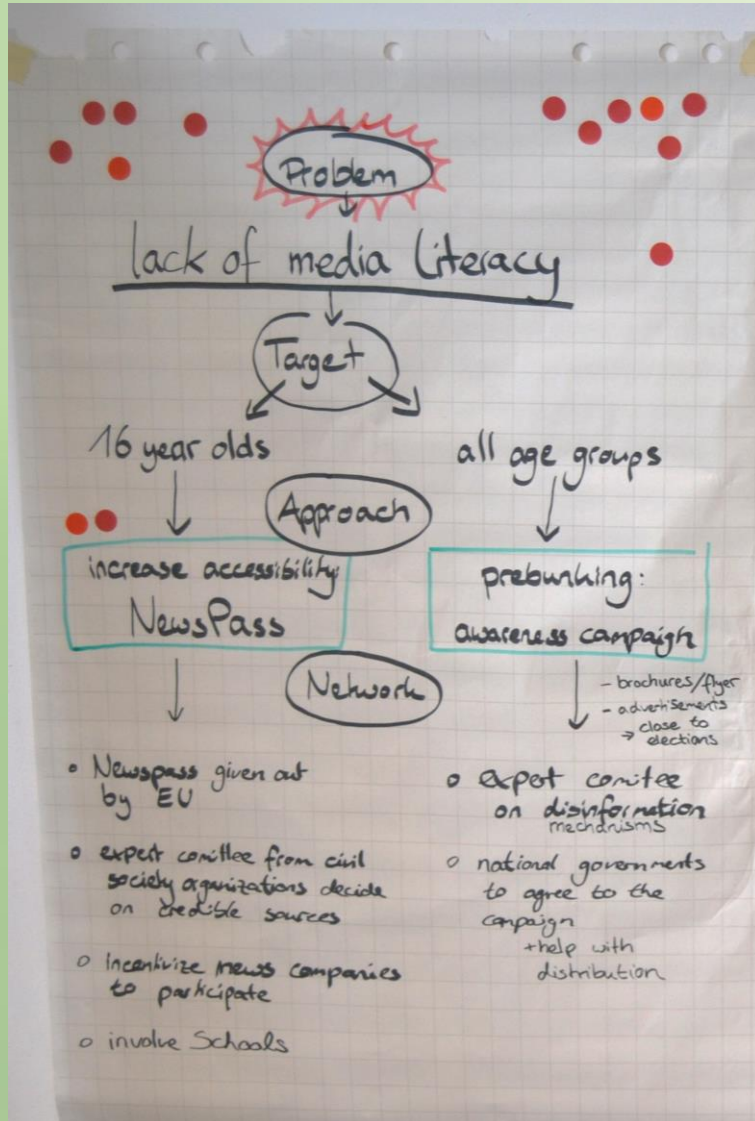 Problem
lack of media literacy
Target
16 year olds
all age groups
Approach
increase accessibility:
NewsPass
prebunking:
awareness campaign
Network
- brochures/flyer
- advertisements
close to
→ elections
• Newspass given out
by EU
o expert comittee from civil
society organizations decide
on credible sources
o Incentivize news companies
to participate
o involve Schools
o expert comitee
on disinformation
mechanisms
o national governments
to agree to the
campaign
+help with
distribution